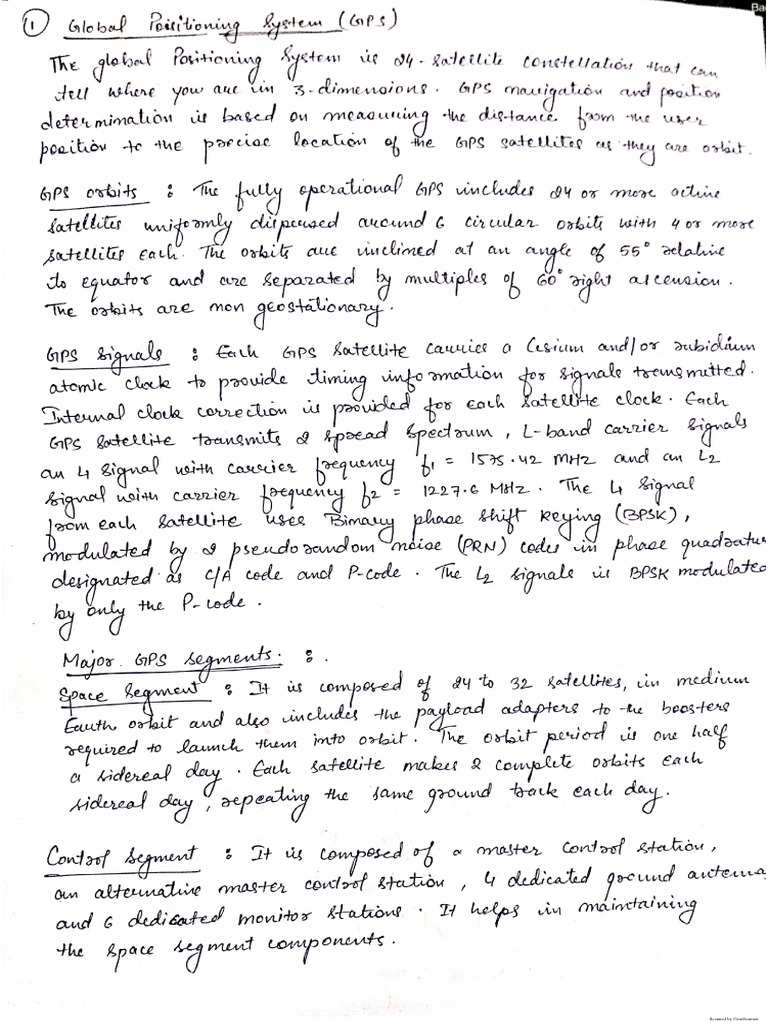 Ba
① Global Positioning System (GPS)
The global Positioning System is 24-satellite constellation that can
tell where you are in 3-dimensions. GPS navigation and position
determination is based on measuring the distance from the user
position to the precise location of the GPS satellites as they are orbit.
GPS orbits : The fully operational GPS includes 24 or more active
satellites uniformly dispersed around 6 circular orbits with 4 or more
satellites each. The orbits are inclined at an angle of 55° relative
to equator and are separated by multiples of 60° right ascension.
The orbits are non geostationary.
GPS signals : Each GPS satellite carries a Cesium and/or rubidium
atomic clock to provide timing information for signals transmitted.
Internal clock correction is provided for each satellite clock. Each
GPS satellite transmits 2 spread spectrum, L-band carrier signals
an L1 signal with carrier frequency f1 = 1575.42 MHz and an L2
signal with carrier frequency f2 = 1227.6 MHz. The L1 signal
from each satellite uses Binary phase shift keying (BPSK),
modulated by 2 pseudorandom noise (PRN) codes in phase quadratur
designated as C/A code and P-code. The L2 signals is BPSK modulated
by only the P-code.
Major GPS segments. :
Space Segment : It is composed of 24 to 32 satellites, in medium
Earth orbit and also includes the payload adapters to the boosters
required to launch them into orbit. The orbit period is one half
a sidereal day. Each satellite makes 2 complete orbits each
sidereal day, repeating the same ground track each day.
Control Segment : It is composed of a master control station,
an alternative master control station, 4 dedicated ground antenna
and 6 dedicated monitor stations. It helps in maintaining
the space segment components.
Scanned by CamScanner